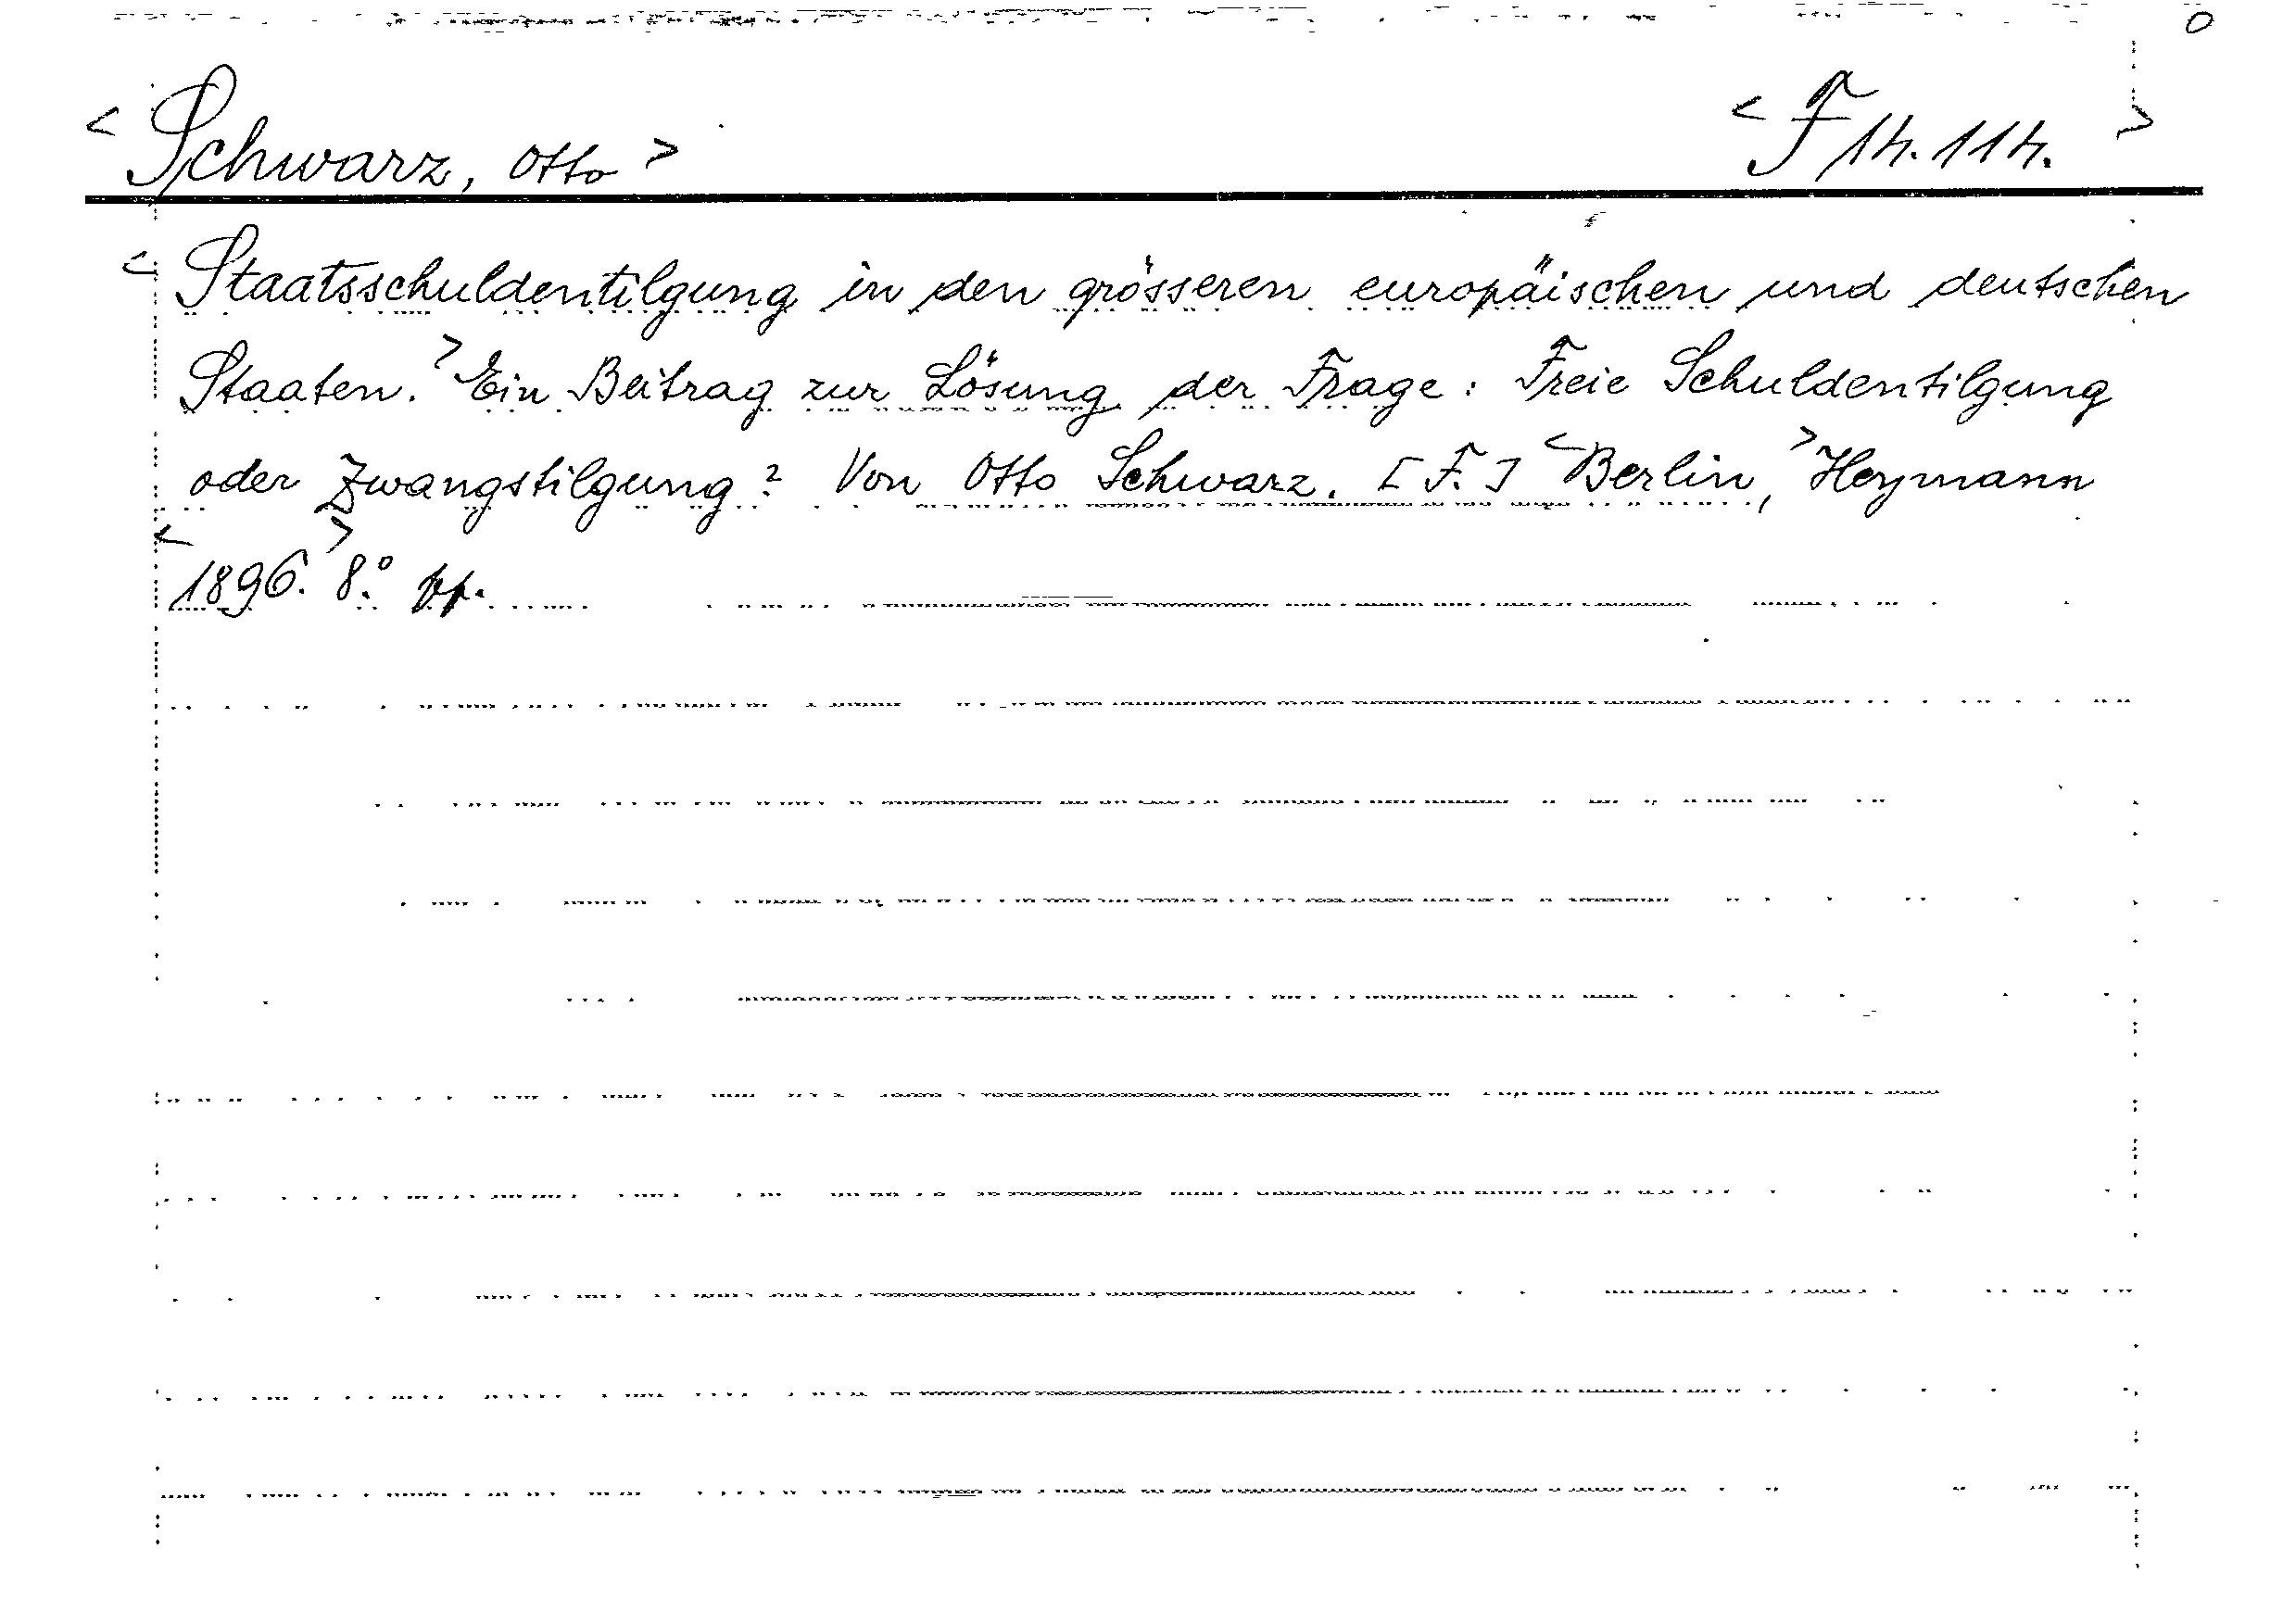 0
< Schwarz, Otto > < F 14.114. >
< Staatsschuldentilgung in den grösseren europäischen und deutschen
Staaten. > Ein Beitrag zur Lösung der Frage: Freie Schuldentilgung
oder Zwangstilgung? Von Otto Schwarz. [F.] < Berlin, > Heymann
< 1896. > 8.°